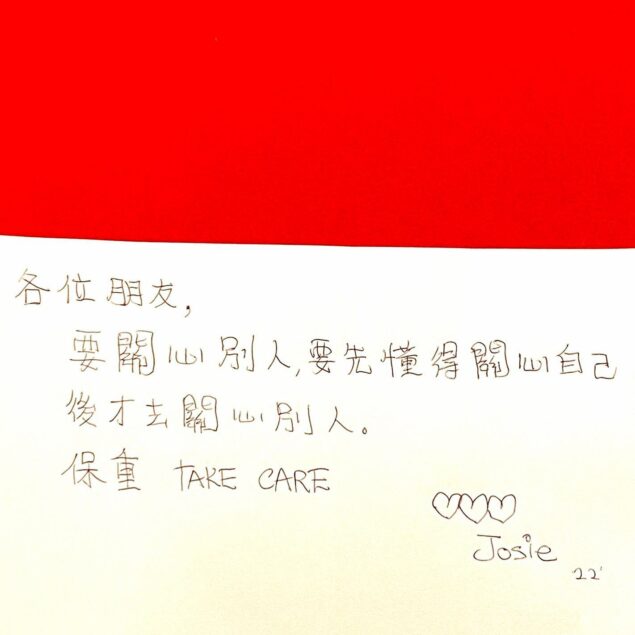 各位朋友，
要關心別人,要先懂得關心自己
後才去關心別人。
保重 TAKE CARE
Josie
22'